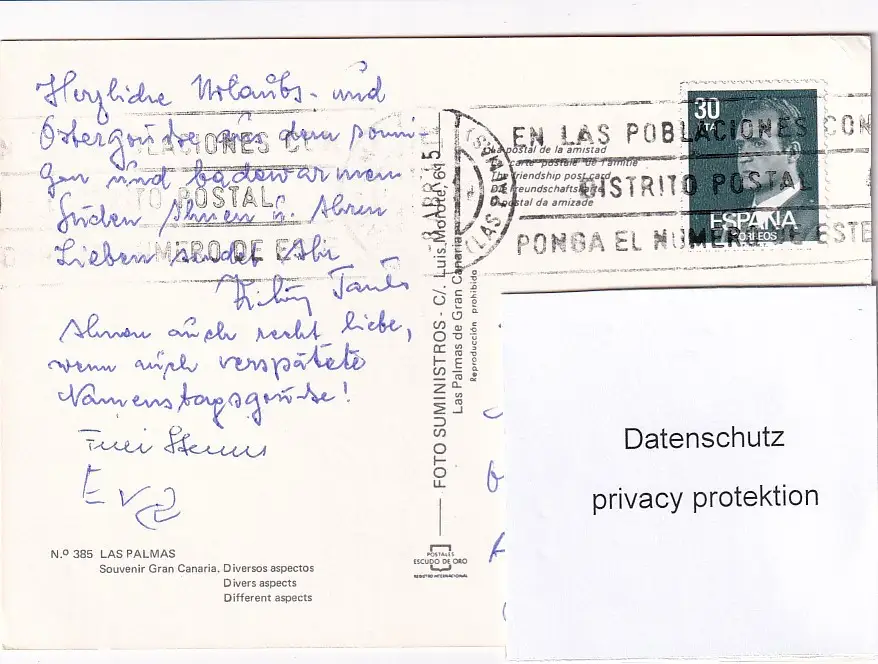 Herzliche Urlaubs- und
Ostergrüße aus dem sonni-
gen und badewarmen
Süden Ihnen u. Ihren
Lieben sendet Ihr
Ihnen auch recht liebe,
wenn auch verspätete
Namenstagsgrüße!
Eva
N.º 385 LAS PALMAS
Souvenir Gran Canaria. Diversos aspectos
Divers aspects
Different aspects
FOTO SUMINISTROS - C/. Luis Morote, 61
Las Palmas de Gran Canaria
Reproducción prohibida
POSTALES
ESCUDO DE ORO
REGISTRO INTERNACIONAL
LACIONES C
TO POSTAL
MERO DE E
ABR
(LAS PALMAS)
EN LAS POBLACIONES CON
DISTRITO POSTAL
PONGA EL NUMERO DE ESTE
La postal de la amistad
carte postale de l'amitié
The friendship post card
Die Freundschaftskarte
postal da amizade
30
PTA
ESPAÑA
CORREOS
Datenschutz
privacy protektion